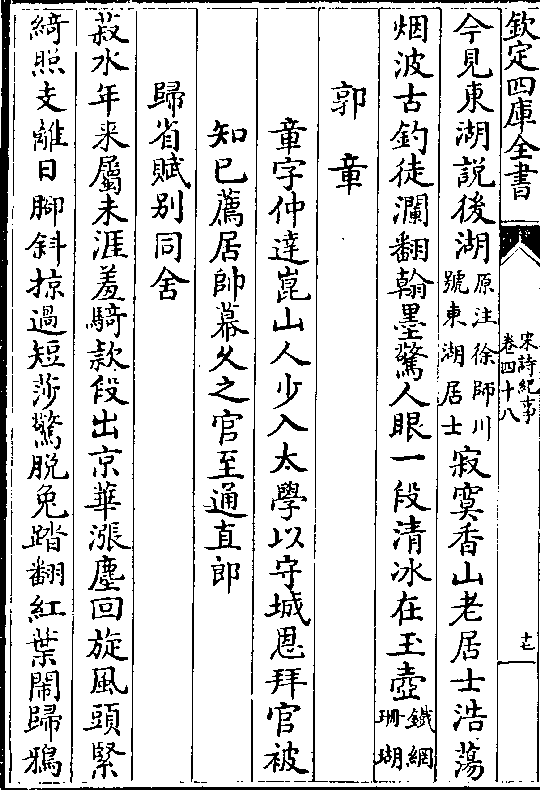 欽定四庫全書
宋詩紀事
卷四十八
十七
今見東湖説後湖原注徐師川號東湖居士寂寞香山老居士浩蕩
烟波古釣徒瀾翻翰墨驚人眼一段清冰在玉壺鐵網珊瑚
郭章
章字仲達崑山人少入太學以守城恩拜官被
知已薦居帥幕久之官至通直郎
歸省賦别同舍
菽水年来屬未涯羞騎款段出京華漲塵回旋風頭緊
綺照支離日脚斜掠過短莎驚脱兔踏翻紅葉鬧歸鴉